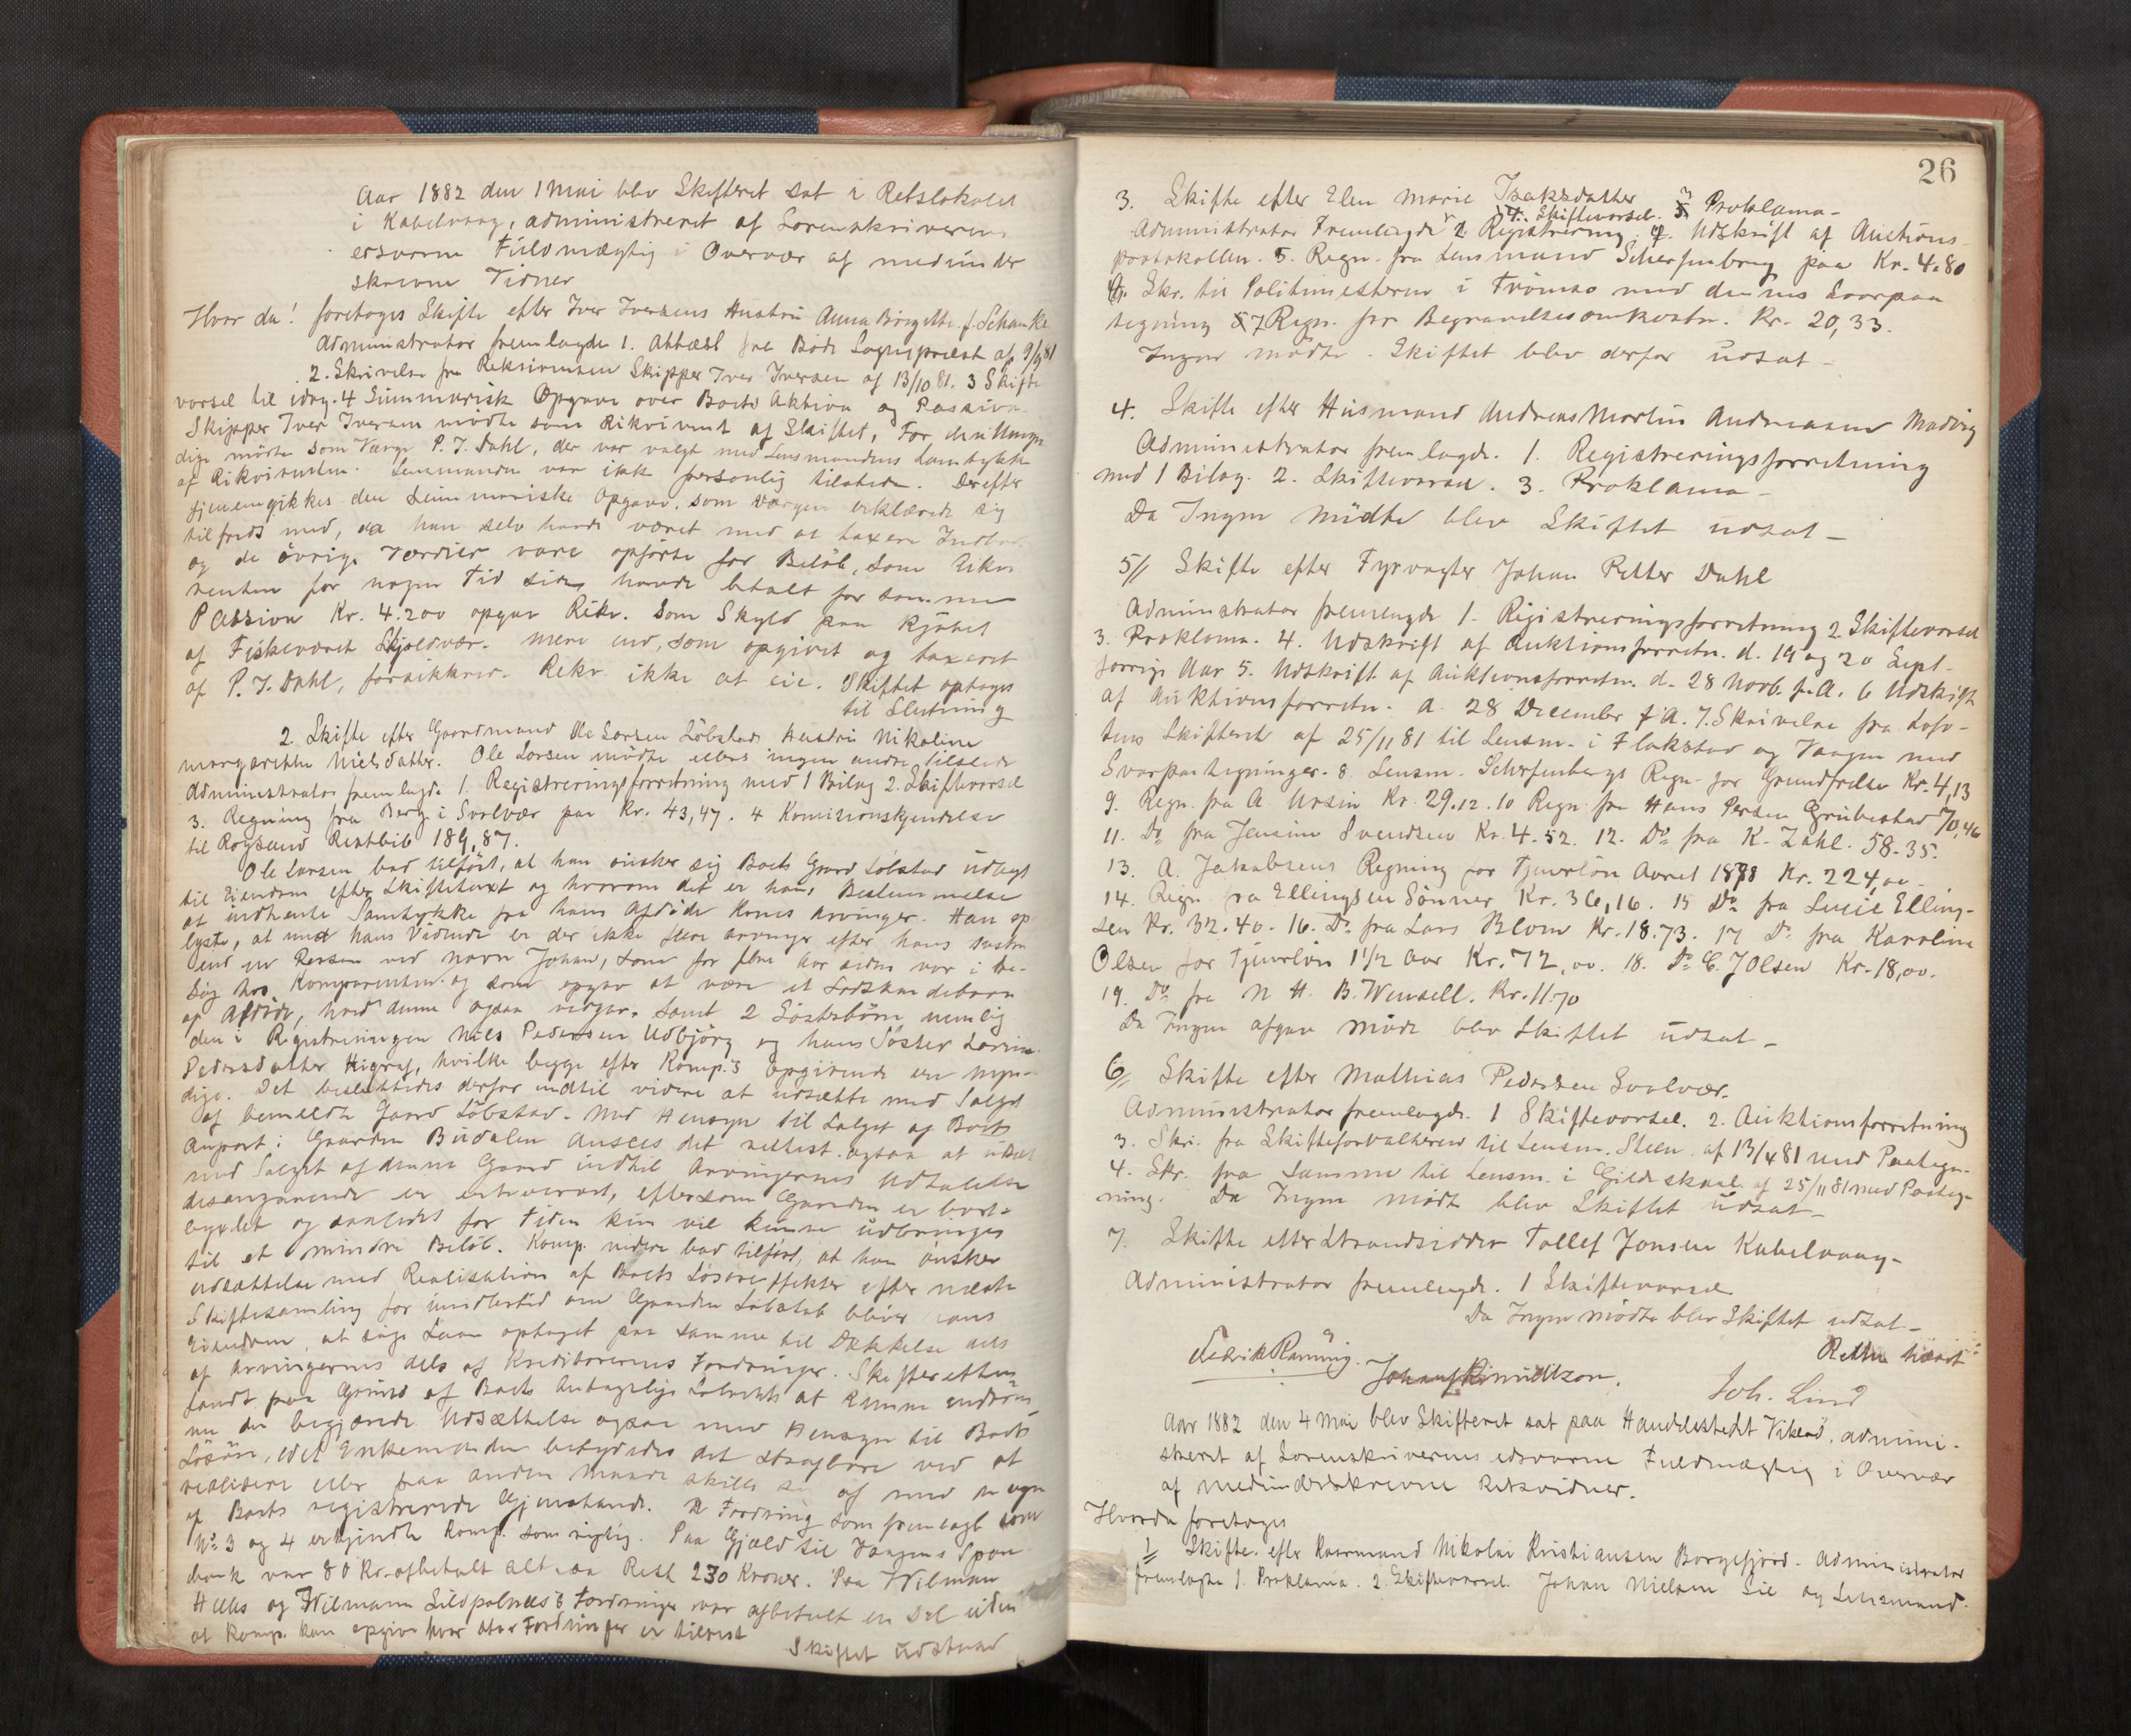 Aar 1882 den 1 Mai blev Skifteret sat i Retslokalet
i Kabelvaag, administreret af Sorenskriverens
edsvorne Fuldmægtig i Overvær af medunder
skrevne Vidner
Hvor da! foretoges Skifte efter Iver Iversens Hustru Anna Birgitte f. Schanke
Administrator fremlagde 1. Attest fra Bodø Sogneprest af 9/9 81
2. Skrivelse fra Rekvirenten Skipper Iver Iversen af 13/10 81. 3 Skifte
varsel til idag. 4 Summarisk Opgave over Boets Aktiva og Passiva
Skipper Iver Iversen mødte som Rikvirent af Skiftet, For de umyn
dige mødte som Værge P. J. Dahl, der var valgt med Lensmandens Samtykke
af Rikvirenten. Lensmanden var ikke personlig tilstede. Derefter
gjennemgikkes den summariske Opgave, som værgen erklærede sig
tilfreds med, da han selv havde været med at taxere Indbo
og de øvrige Værdier vare opførte for Beløb, som Rikvi
renten for nogen Tid siden havde betalt for samme
Passiva Kr. 4.200 opgav Rikv. som Skyld paa Kjøbet
af Fiskeværet Skjoldvær. Mere end, som opgivet og taxeret
af P. J. Dahl, forsikkrer Rekv. ikke at eie. Skiftet optoges
til Slutning
2. Skifte efter Gaardmand Ole Larsen Løbstads Hustru Nikoline
Margarethe Nielsdatter. Ole Larsen mødte ellers ingen andre tilstede
Administrator fremlagde 1. Registreringsforretning med 1 Bilag 2. Skiftevarsel
3. Regning fra Berg i Svolvær paa Kr. 43,47. 4 Komisionskjendelse
til Restbeb 189,87.
Ole Larsen bad tilført, at han ønsker sig Boets Gaard Løbstad udlagt
til Eiendom efter Skiftetaxt og hvorom det er hans Bestemmelse
at indhente Samtykke fra hans Afdøde Kones Arvinger. Han op
lyste, at med hans Vidende er der ikke flere arvinger efter hans
end en Person ved Navn Johan, som for flere Aar siden var i be-
søg hos Komparenten og som opgav at være et
af Afdøde, hvad denne ogsaa vedgav. samt 2 Søstebørn nemlig
den i Registreringen Niels Pedersen Udbjørg og hans Søster
Pedersdatter Higrav, hvilke begge efter Komp.s Opgivende ere myn-
dige. Det besluttedes derfor indtil videre at udsætte med Salget
af bemeldte Gaard Løbstad. Med Hensyn til Salget af Boets
Anpart i Gaarden Budalen ansees det rettest ogsaa at udsæt
med Salget af denne Gaard indtil Arvingernes Udtalelse
desangaaende er erhvervet, eftersom Gaarden er bort-
bygslet og saaledes for Tiden kun vil kunne udbringes
til et mindre Beløb. Komp. videre bad tilført, at han ønsker
udsættelse med Realisation af Boets Løsøreeffekter efter næste
Skiftesamling for imidlertid om Gaarden Løbstad bliver hans
Eiendom, at søge Laan optaget paa samme til Dækkelse dels
af Arvingernes dels af Kreditorernes Fordringer. Skifteretten
fandt paa Grund af Boets at kunne indrøm
me den begjærede Udsættelse ogsaa med Hensyn til Boets
Løsøre, idet Enkemanden betydedes det Strafbare ved at
realisere eller paa anden Maade skille sig af med nogen
af Boets registrerede Gjenstande. De Fordring som fremlagt som
No 3 og 4 erkjendte Komp. som rigtig. Paa Gjæld til Vaagens Spare
bank var 80 Kr. afbetalt altsaa Rest 230 Kroner. Paa Wilman
og Wilmann Fordringer var afbetalt en Del uden
at Komp. kan opgive hvor stor Fordringer er tilrest
Skiftet udstaar
26
3. Skifte efter Elen Marie Isaksdatter
Administrator Fremlagde 1. Skiftevarsel. 2 Registrering. 3 Proklama - 4. Udskrift af Auctions
protokollen. 5. Regn. fra Lensmand Scherfenberg paa Kr. 4.80
6. Skr. til Politimesteren i Tromsø med dennes Svarpaa
tegning 7 Regn. for Begravelsesomkostn. Kr. 20,33.
Ingen mødte. Skiftet blev derfor udsat -
4. Skifte efter Husmand Andreas Martin Andreasen Madvig
Administrator fremlagde. 1. Registreringsforretning
med 1 Bilag. 2. Skiftevarsel. 3. Proklama -
Da Ingen mødte blev Skiftet udsat -
5// Skifte efter Fyrvogter Johan Petter Dahl
Administrator fremlagde 1. Registreringsforretning 2. Skiftevarsel
3. Proklama. 4. Udskrift af Auktionsforretn. d. 19 og 20 Sept.
forrige Aar 5. Udskrift af Auktionsforretn. d. 28 Novb. f. A. 6 Udskrift
af Auktionsforretn. d. 28 December f. A. 7. Skrivelse fra Lofo-
tens Skifteret af 25/11 81 til Lensm. i Flakstad og Vaagen med
Svarpaategninger. 8. Lensm. Scherfenbergs Regn. for Grundfrelse Kr. 4,13
9. Regn. fra A. Ursin Kr. 29.12. 10 Regn. fra Hans Persen Grubestad 70,46
11. Do fra Jensine Svendsen Kr. 4.52. 12. Do fra K. Zahl. 58.35.
13. A. Jakobsens Regning for Tjenerløn Aaret 1878 Kr. 224,00
14. Regn. fra Ellingsen Sønner Kr. 36,16. 15 Do fra Lucie Elling-
sen Kr. 32.40. 16. Do fra Lars Blom Kr. 18.73. 17 Do fra Karoline
Olsen for Tjenerløn 1 1/2 Aar Kr. 72,00. 18. Do C. J Olsen Kr. 18,00.
19. Do fra N H. B. Wensell. Kr. 11.70
Da Ingen afgav Møde blev Skiftet udsat -
6// Skifte efter Mathias Pedersen Svolvær.
Administrator fremlagde. 1 Skiftevarsel. 2. Auktionsforretning
3. Skr. fra Skifteforvalteren til Lensm. Steen af 13/4 81 med Paategn.
4. Skr. fra samme til Lensm. i Gildeskaal af 25/11 81 med Paateg-
ning. Da Ingen mødte blev Skiftet udsat -
7. Skifte efter Strandsidder Tollef Jonsen Kabelvaag -
Administrator fremlagde. 1 Skiftevarsel
Da Ingen mødte blev Skiftet udsat -
Retten hævet
Fredrik Rønning. Joh. Lind
Aar 1882 den 4 Mai blev Skifteret sat paa Handelsstedet, admini-
streret af Sorenskriverens edsvorne Fuldmægtig i Overvær
af medunderskrevne Retsvidner.
Hvorda foretoges
1 Skifte efter Nikolai Kristiansen Borgefjord - Administrator
fremlagde 1. Proklama. 2. Skiftevarsel. Johan Nielsen Lie og Lensmand.